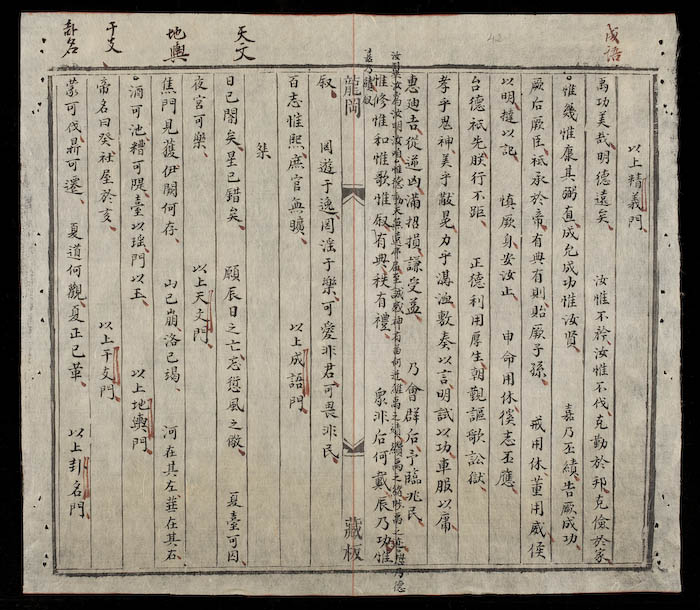 成語
以上精義門
禹功美哉明德遠矣 汝惟不矜汝惟不伐克勤於邦克儉於家
惟幾惟康其弼直成允成功惟汝賢 嘉乃丕績告厥成功
厥后厥臣祗承於帝有典有則貽厥子孫 戒用休董用威侯
以明撻以記 慎厥身安汝止 申命用休徯志丕應
台德祗先朕行不距 正德利用厚生朝覲謳歌訟獄
孝乎鬼神美乎黻冕力乎溝洫敷奏以言明試以功車服以庸
惠迪吉從逆凶滿招損謙受益 乃會群后予臨兆民
惟修惟和惟歌惟叙有典秩有禮 眾非后何戴辰乃功惟
嘉乃時叙
龍岡
藏板
叙 罔遊于逸罔淫于樂可愛非君可畏非民
百志惟熙庶官無曠 以上成語門
桀
天文
日已闇矣星已錯矣 願辰日之亡忘愆風之儆 夏臺可囚
夜宮可樂 以上天文門
地輿
焦門見獲伊闕何存 山已崩洛已竭 河在其左華在其右
酒可池糟可隄臺以瑤門以玉 以上地輿門
干支
帝名曰癸社屋於亥 以上干支門
卦名
蒙可伐鼎可遷 夏道何觀夏正已革 以上卦名門